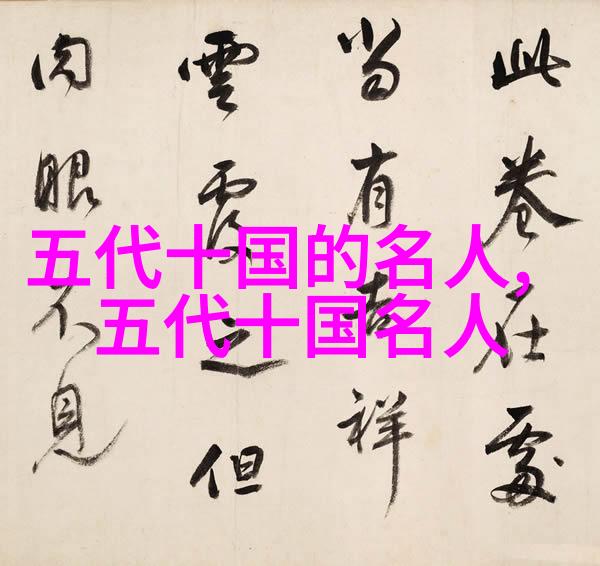 此卷在處
当有吉祥
雲覆之但
肉眼不見
五代十国的名人,
五代十国名人